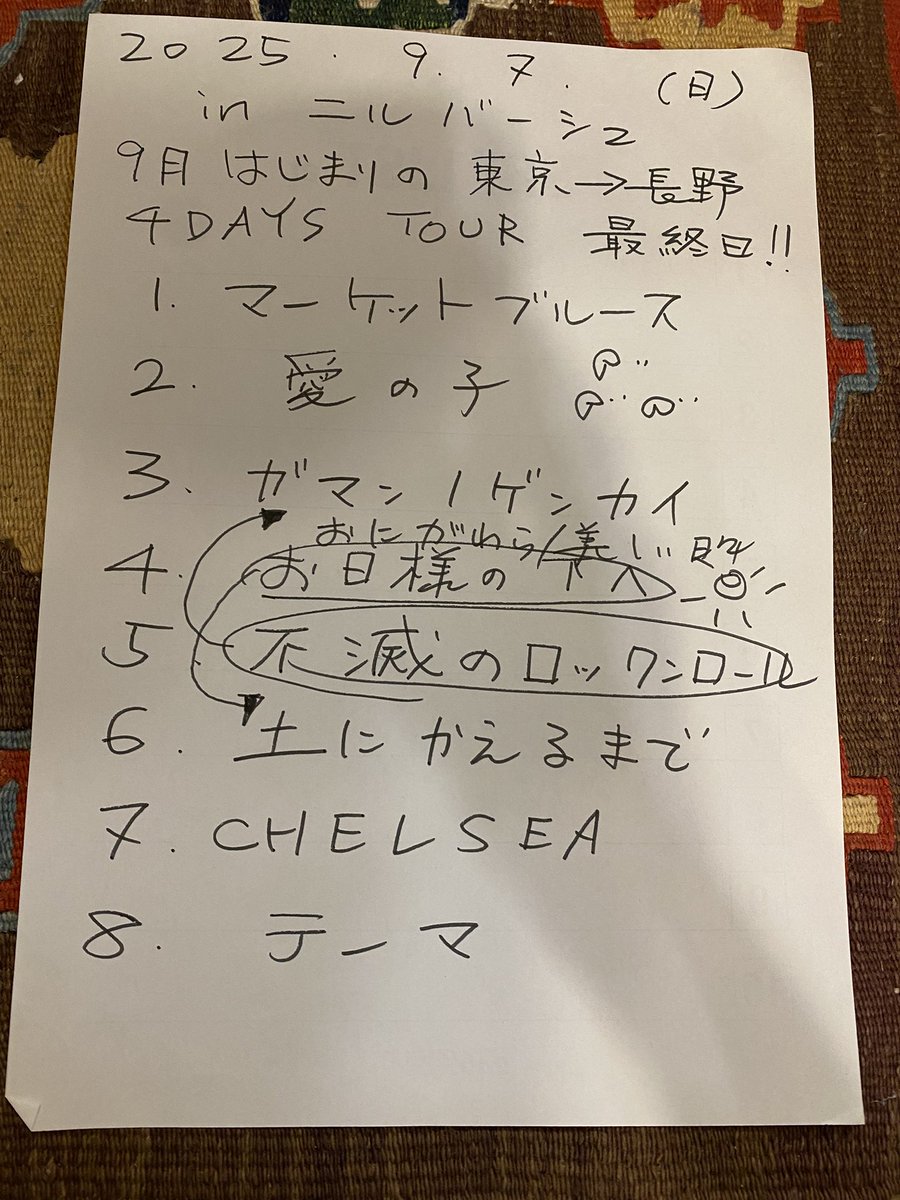 2025.9.7.(日)
in ニルバーシュ
9月はじまりの東京→長野
4DAYS TOUR 最終日!!
1. マーケットブルース
2. 愛の子
3. ガマンノゲンカイ
おにがわら/美しい
4. お日様の下へ
5 不滅のロックンロール
6. 土にかえるまで
7. CHELSEA
8. テーマ